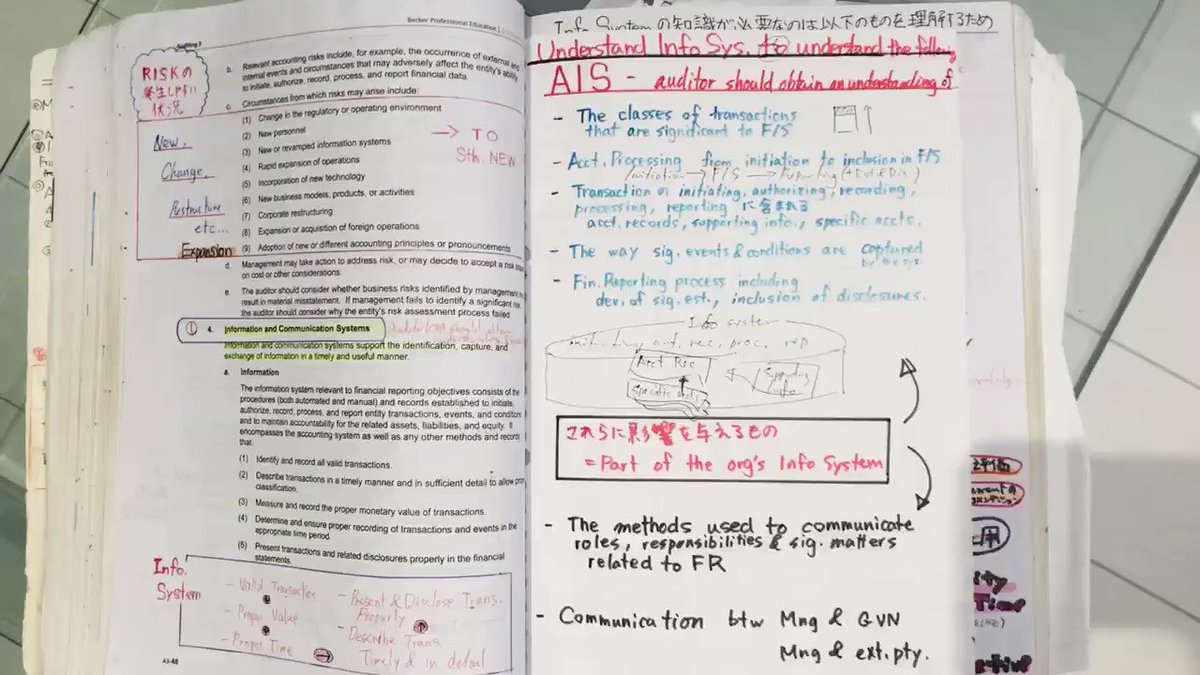 Becker Professional Education
Auditing 3
RISKの
発生しやすい
状況
b. Relevant accounting risks include, for example, the occurrence of external and
internal events and circumstances that may adversely affect the entity's ability
to initiate, authorize, record, process, and report financial data.
c. Circumstances from which risks may arise include:
(1) Change in the regulatory or operating environment
(2) New personnel
(3) New or revamped information systems
(4) Rapid expansion of operations
(5) Incorporation of new technology
(6) New business models, products, or activities
(7) Corporate restructuring
(8) Expansion or acquisition of foreign operations
(9) Adoption of new or different accounting principles or pronouncements
New,
Change,
Restructure
etc...
Expansion
→ TO
Sth. NEW
d. Management may take action to address risk, or may decide to accept a risk
on cost or other considerations.
e. The auditor should consider whether business risks identified by management
result in material misstatement. If management fails to identify a significant
the auditor should consider why the entity's risk assessment process failed
① 4. Information and Communication Systems
Information and communication systems support the identification, capture, and
exchange of information in a timely and useful manner.
a. Information
The information system relevant to financial reporting objectives consists of the
procedures (both automated and manual) and records established to initiate,
authorize, record, process, and report entity transactions, events, and
and to maintain accountability for the related assets, liabilities, and equity. It
encompasses the accounting system as well as any other methods and records
that:
(1) Identify and record all valid transactions.
(2) Describe transactions in a timely manner and in sufficient detail to allow
classification.
(3) Measure and record the proper monetary value of transactions.
(4) Determine and ensure proper recording of transactions and events in the
appropriate time period.
(5) Present transactions and related disclosures properly in the financial
statements.
Info.
System
- Valid Transaction
- Proper Value
- Proper Time
- Present & Disclose Trans.
Property
- Describe Trans
Timely & in detail
A3-48
Info System の知識が必要なのは以下のものを理解するため
Understand Info Sys. to understand the following
AIS - auditor should obtain an understanding of
- The classes of transactions
that are significant to F/S
- Acct. Processing from initiation to inclusion in F/S
initiation → F/S → Reporting
- Transaction の initiating, authorizing, recording,
processing, reporting に含まれる
acct. records, supporting info., specific accts.
- The way sig. events & conditions are captured
by the sys.
- Fin. Reporting process including
dev. of sig. est., inclusion of disclosures.
Info system
initiating, aut. rec. proc. rep
Acct Rec
Supporting
info
Specific accts
これらに影響を与えるもの
= Part of the org's Info System
- The methods used to communicate
roles, responsibilities & sig. matters
related to FR
- Communication btw Mng & GVN
Mng & ext. pty.